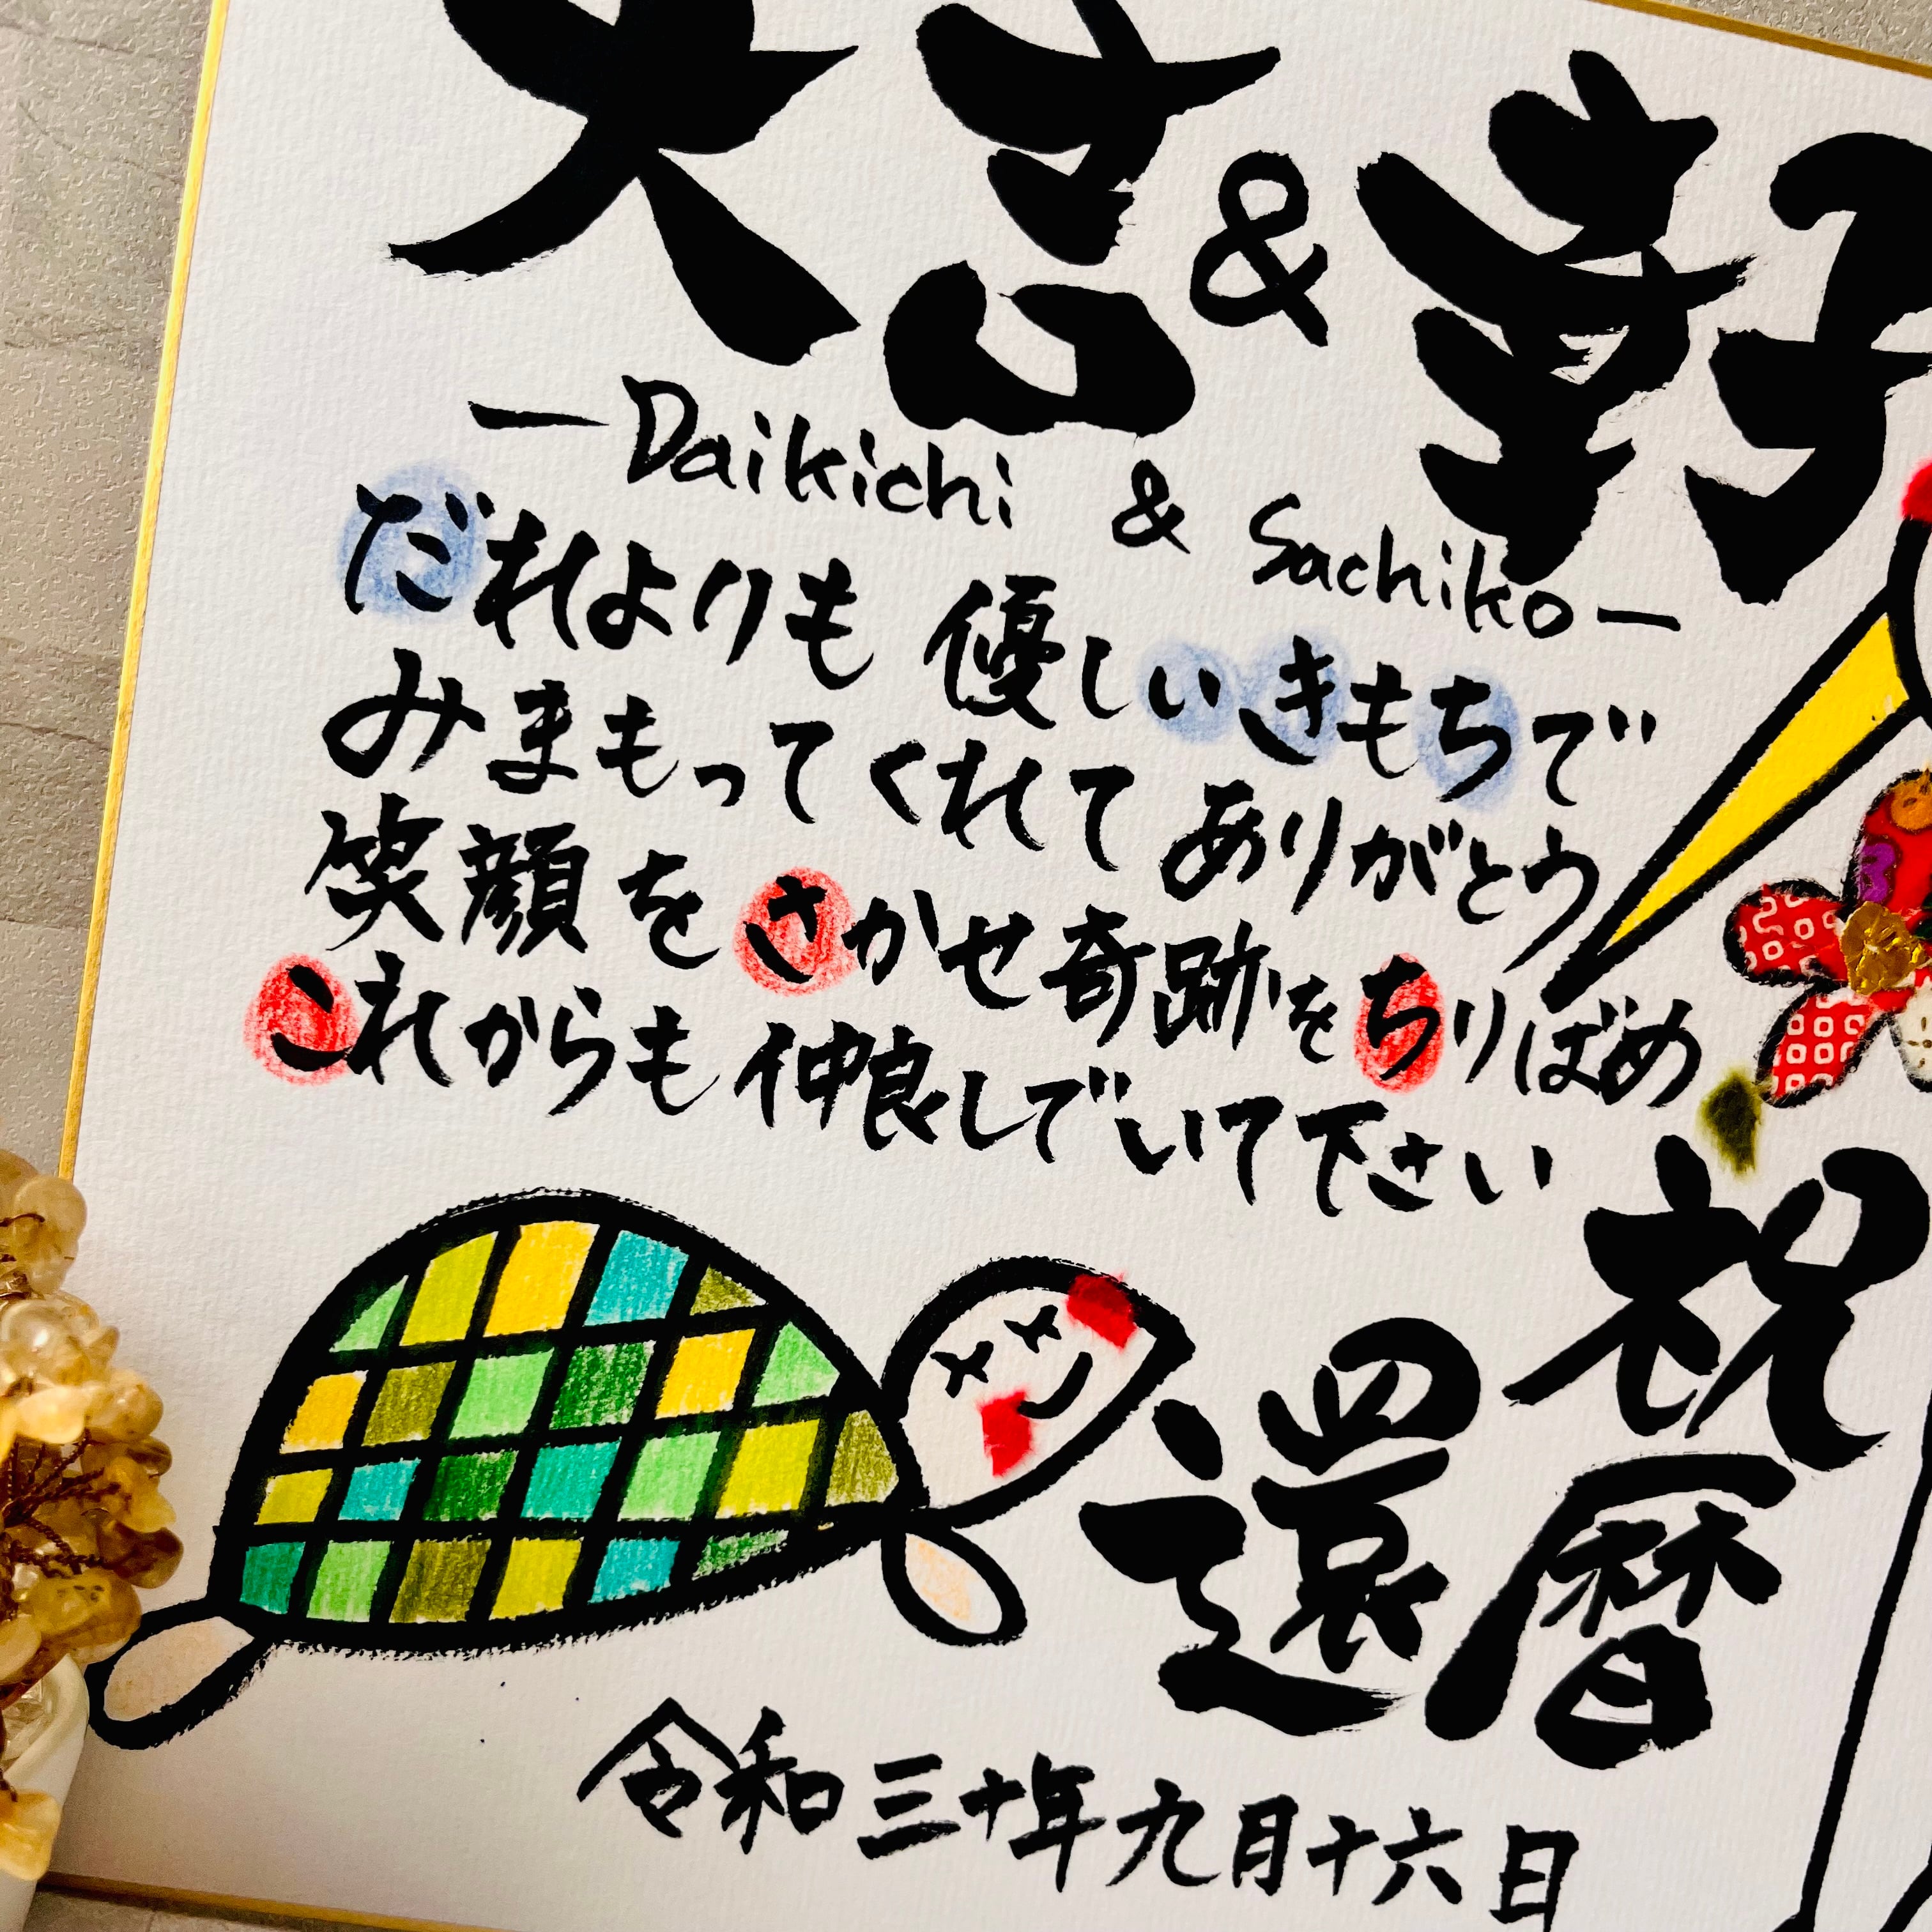 大吉&幸子
ーDaikichi & Sachikoー
だれよりも 優しいきもちで
みまもってくれて ありがとう
笑顔をさかせ奇跡をちりばめ
これからも 仲良しでいて下さい
祝
還暦
令和三十年九月十六日